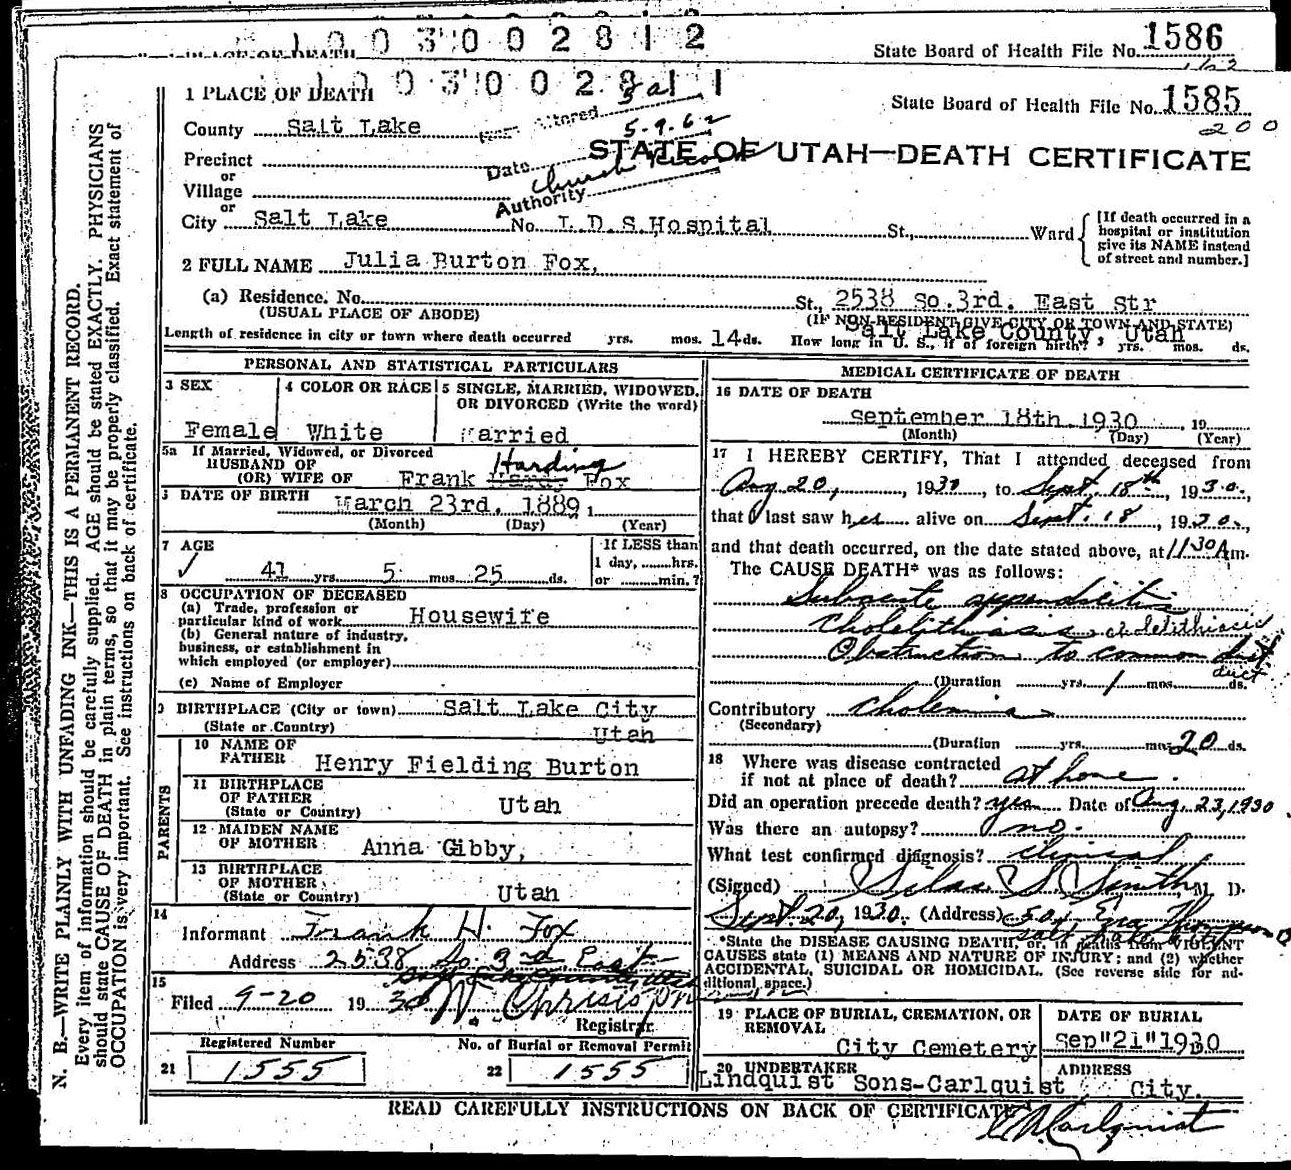 1003002812
State Board of Health File No. 1586
1003002811
State Board of Health File No. 1585
200
1 PLACE OF DEATH
County Salt Lake
Item Altered 3a
Date 5-9-62
Authority Church Record
STATE OF UTAH—DEATH CERTIFICATE
Precinct
or
Village
or
City Salt Lake No. L.D.S.Hospital St., Ward
[If death occurred in a hospital or institution give its NAME instead of street and number.]
2 FULL NAME Julia Burton Fox,
(a) Residence. No. St., 2538 So.3rd. East Str
(USUAL PLACE OF ABODE) (IF NON-RESIDENT GIVE CITY OR TOWN AND STATE)
Salt Lake County, Utah
Length of residence in city or town where death occurred yrs. mos. 14 ds. How long in U. S., if of foreign birth? yrs. mos. ds.
PERSONAL AND STATISTICAL PARTICULARS
3 SEX Female
4 COLOR OR RACE White
5 SINGLE, MARRIED, WIDOWED, OR DIVORCED (Write the word) Married
5a If Married, Widowed, or Divorced
HUSBAND OF
(OR) WIFE OF Frank Harding Fox
6 DATE OF BIRTH March 23rd. 1889
(Month) (Day) (Year)
7 AGE
41 yrs. 5 mos. 25 ds.
If LESS than
1 day, hrs.
or min.?
8 OCCUPATION OF DECEASED
(a) Trade, profession or
particular kind of work Housewife
(b) General nature of industry,
business, or establishment in
which employed (or employer)
(c) Name of Employer
9 BIRTHPLACE (City or town) Salt Lake City
(State or Country) Utah
PARENTS
10 NAME OF FATHER Henry Fielding Burton
11 BIRTHPLACE OF FATHER (State or Country) Utah
12 MAIDEN NAME OF MOTHER Anna Gibby,
13 BIRTHPLACE OF MOTHER (State or Country) Utah
14
Informant Frank H. Fox
Address 2538 So 3rd East
15
Filed 9-20 1930
Registrar
Registered Number
21 1555
No. of Burial or Removal Permit
22 1555
MEDICAL CERTIFICATE OF DEATH
16 DATE OF DEATH
September 18th. 1930, 19
(Month) (Day) (Year)
17 I HEREBY CERTIFY, That I attended deceased from
Aug 20, 1930, to Sept. 18th, 1930,
that I last saw her alive on Sept. 18, 1930,
and that death occurred, on the date stated above, at 11 30 A m.
The CAUSE DEATH* was as follows:
Subacute appendicitis
Cholelithiasis cholelithiasis
Obstruction to common duct
duct
(Duration yrs. 1 mos. ds.
Contributory Cholemia
(Secondary)
(Duration yrs. mos. 20 ds.
18 Where was disease contracted
if not at place of death? at home.
Did an operation precede death? yes Date of Aug. 23, 1930
Was there an autopsy? no.
What test confirmed diagnosis? clinical
(Signed) Silas S. Smith M. D.
Sept. 20, 1930. (Address)
*State the DISEASE CAUSING DEATH, or, in deaths from VIOLENT
CAUSES state (1) MEANS AND NATURE OF INJURY; and (2) whether
ACCIDENTAL, SUICIDAL OR HOMICIDAL. (See reverse side for ad-
ditional space.)
19 PLACE OF BURIAL, CREMATION, OR REMOVAL
City Cemetery
DATE OF BURIAL
Sep"21"1930
20 UNDERTAKER
Lindquist Sons-Carlquist
ADDRESS
City.
READ CAREFULLY INSTRUCTIONS ON BACK OF CERTIFICATE
N. B.—WRITE PLAINLY WITH UNFADING INK—THIS IS A PERMANENT RECORD.
Every item of information should be carefully supplied. AGE should be stated EXACTLY. PHYSICIANS
should state CAUSE OF DEATH in plain terms, so that it may be properly classified. Exact statement of
OCCUPATION is very important. See instructions on back of certificate.